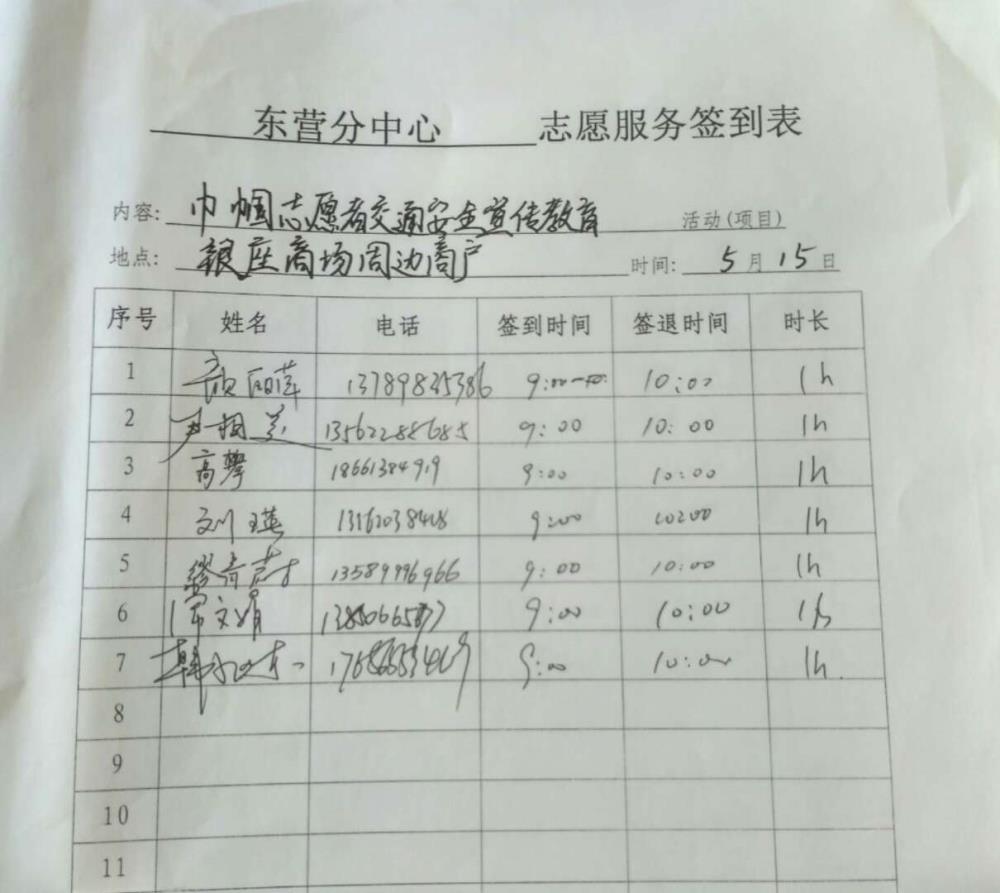 东营分中心 志愿服务签到表
内容: 巾帼志愿者交通安全宣传教育 活动(项目)
地点: 银座商场周边商户 时间: 5月15日
序号 姓名 电话 签到时间 签退时间 时长
1 13789835386 9:00 10:00 1h
2 13562288685 9:00 10:00 1h
3 高攀 18661384919 9:00 10:00 1h
4 刘瑛 9:00 10:00 1h
5 13589996966 9:00 10:00 1h
6 常文娟 9:00 10:00 1h
7 9:00 10:00 1h
8
9
10
11